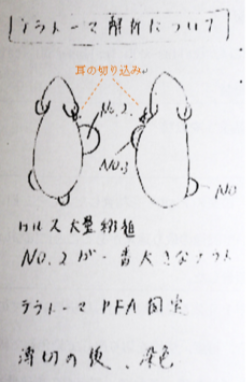 テラトーマ解析について
耳の切り込み
No.2.
No.3
No
ウイルス大量精製
No.2が一番大きなマウス
テラトーマ PFA固定
薄切の後、染色